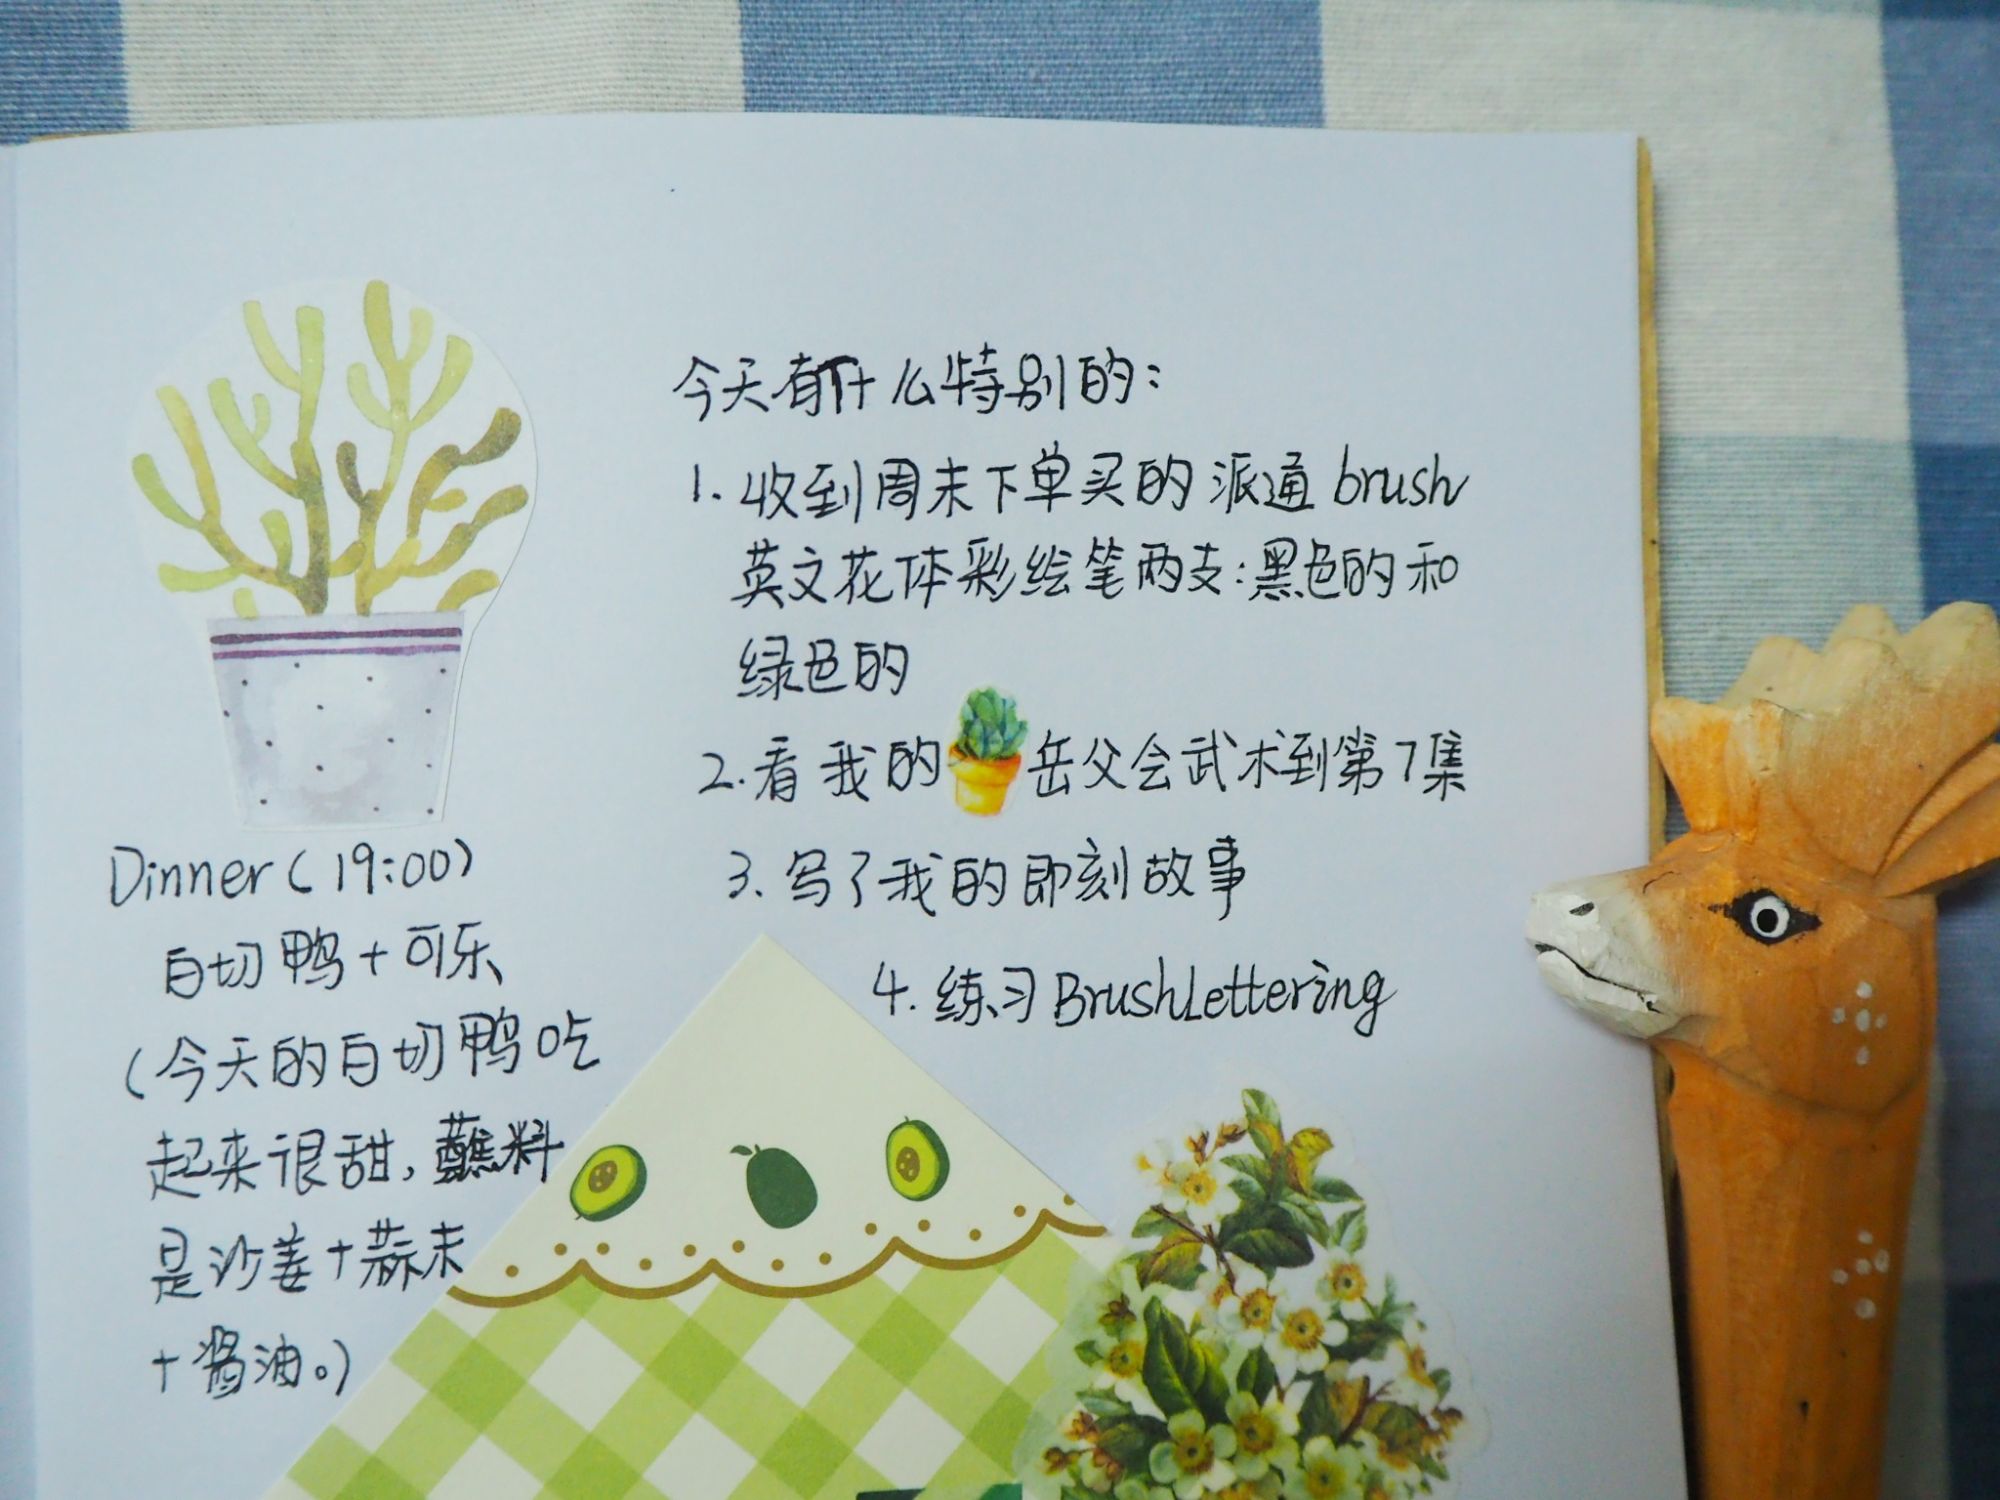 今天有什么特别的：
1. 收到周末下单买的派通 brush
英文花体彩绘笔两支：黑色的和
绿色的
2. 看我的岳父会武术到第7集
3. 写了我的即刻故事
4. 练习 BrushLettering
Dinner（19:00）
白切鸭＋可乐
（今天的白切鸭吃
起来很甜，蘸料
是沙姜＋蒜末
＋酱油。）